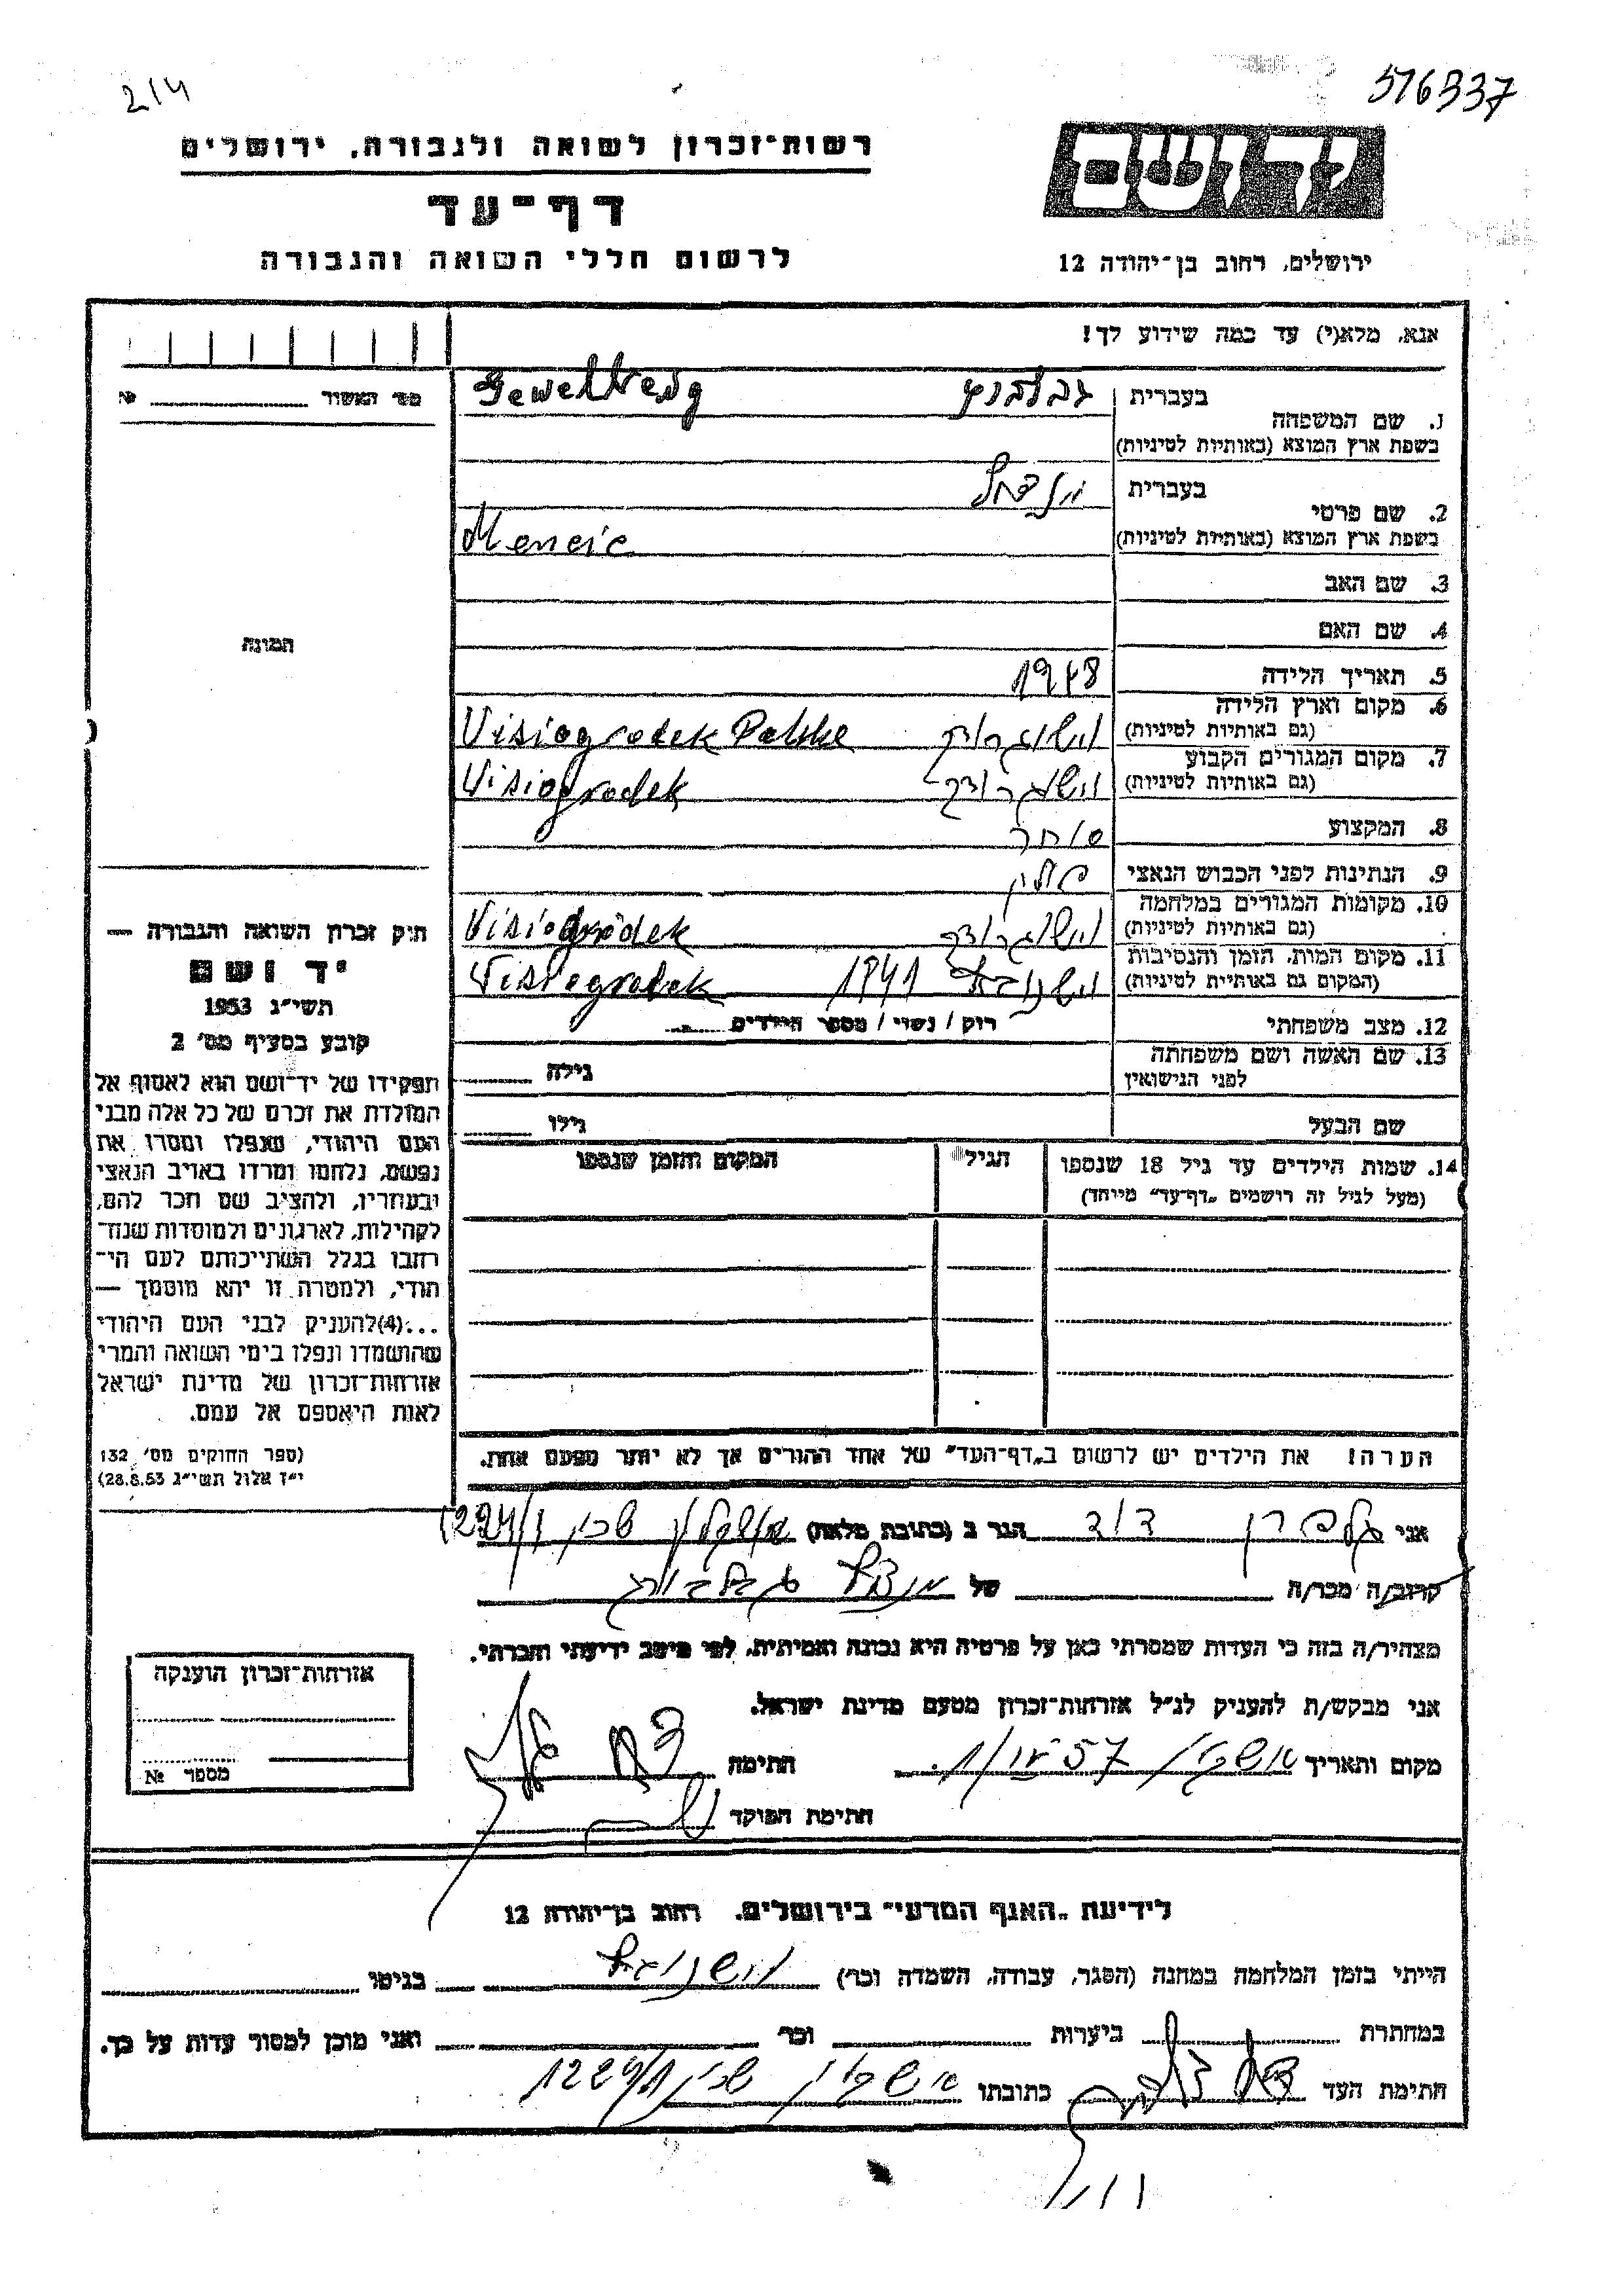 214
576337
רשות־זכרון לשואה ולגבורה, ירושלים
ידושם
דף־עד
לרשום חללי השואה והגבורה
ירושלים, רחוב בן־יהודה 12
אנא, מלא(י) עד כמה שידוע לך!
מס׳ האשור № 
1. שם המשפחה
בעברית
Gewelberg
בשפת ארץ המוצא (באותיות לטיניות)
2. שם פרטי
בעברית
בשפת ארץ המוצא (באותיות לטיניות)
3. שם האב
4. שם האם
התמונה
5. תאריך הלידה
6. מקום וארץ הלידה
(גם באותיות לטיניות) Visiogrodek Polske
7. מקום המגורים הקבוע
(גם באותיות לטיניות) Visiogrodek
8. המקצוע סוחר
9. הנתינות לפני הכבוש הנאצי פולין
10. מקומות המגורים במלחמה
(גם באותיות לטיניות) Visiogrodek
11. מקום המות, הזמן והנסיבות
(המקום גם באותיות לטיניות) 1941 Visiogrodek
12. מצב משפחתי רוק / נשוי / מספר הילדים
13. שם האשה ושם משפחתה
לפני הנישואין גילה
שם הבעל גילו
14. שמות הילדים עד גיל 18 שנספו הגיל המקום והזמן שנספו
(מעל לגיל זה רושמים „דף־עד” מיוחד)
חוק זכרון השואה והגבורה —
יד ושם
תשי״ג 1953
קובע בסעיף מס׳ 2
תפקידו של יד־ושם הוא לאסוף אל
המולדת את זכרם של כל אלה מבני
העם היהודי, שנפלו ומסרו את
נפשם, נלחמו ומרדו באויב הנאצי
ובעוזריו, ולהציב שם וזכר להם,
לקהילות, לארגונים ולמוסדות שנח־
רבו בגלל השתייכותם לעם הי־
הודי, ולמטרה זו יהא מוסמך —
...(4)להעניק לבני העם היהודי
שהושמדו ונפלו בימי השואה והמרי
אזרחות־זכרון של מדינת ישראל
לאות היאספם אל עמם.
(ספר החוקים מס׳ 132
י״ז אלול תשי״ג 28.8.53)
הערה! את הילדים יש לרשום ב„דף־העד” של אחד ההורים אך לא יותר מפעם אחת.
אני דוד הגר ב (כתובת מלאה)
קרוב/ה מכר/ה של
מצהיר/ה בזה כי העדות שמסרתי כאן על פרטיה היא נכונה ואמיתית, לפי מיטב ידיעתי והכרתי.
אני מבקש/ת להעניק לנ״ל אזרחות־זכרון מטעם מדינת ישראל.
מקום ותאריך חתימה
חתימת הפוקד
אזרחות־זכרון הוענקה
מספר №
לידיעת „האגף המדעי” בירושלים. רחוב בן־יהודה 12
הייתי בזמן המלחמה במחנה (הסגר, עבודה, השמדה וכו׳) בגיטו
במחתרת ביערות וכו׳ ואני מוכן למסור עדות על כך.
חתימת העד כתובתו